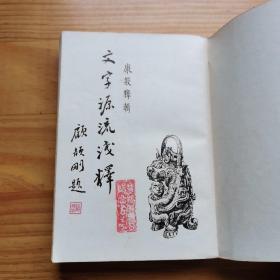 康殷释辑
文字源流浅释
顾颉刚题